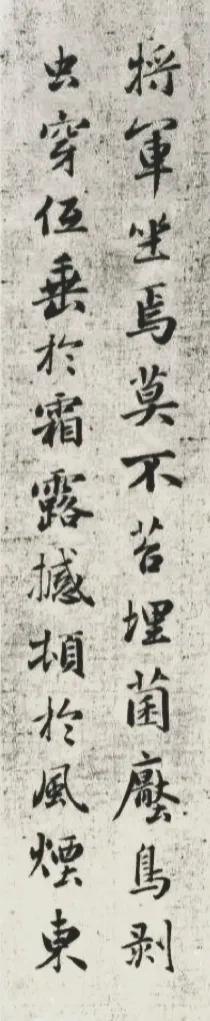 將軍坐焉莫不苔埋菌壓鳥剥
虫穿低垂於霜露撼頓於風煙東